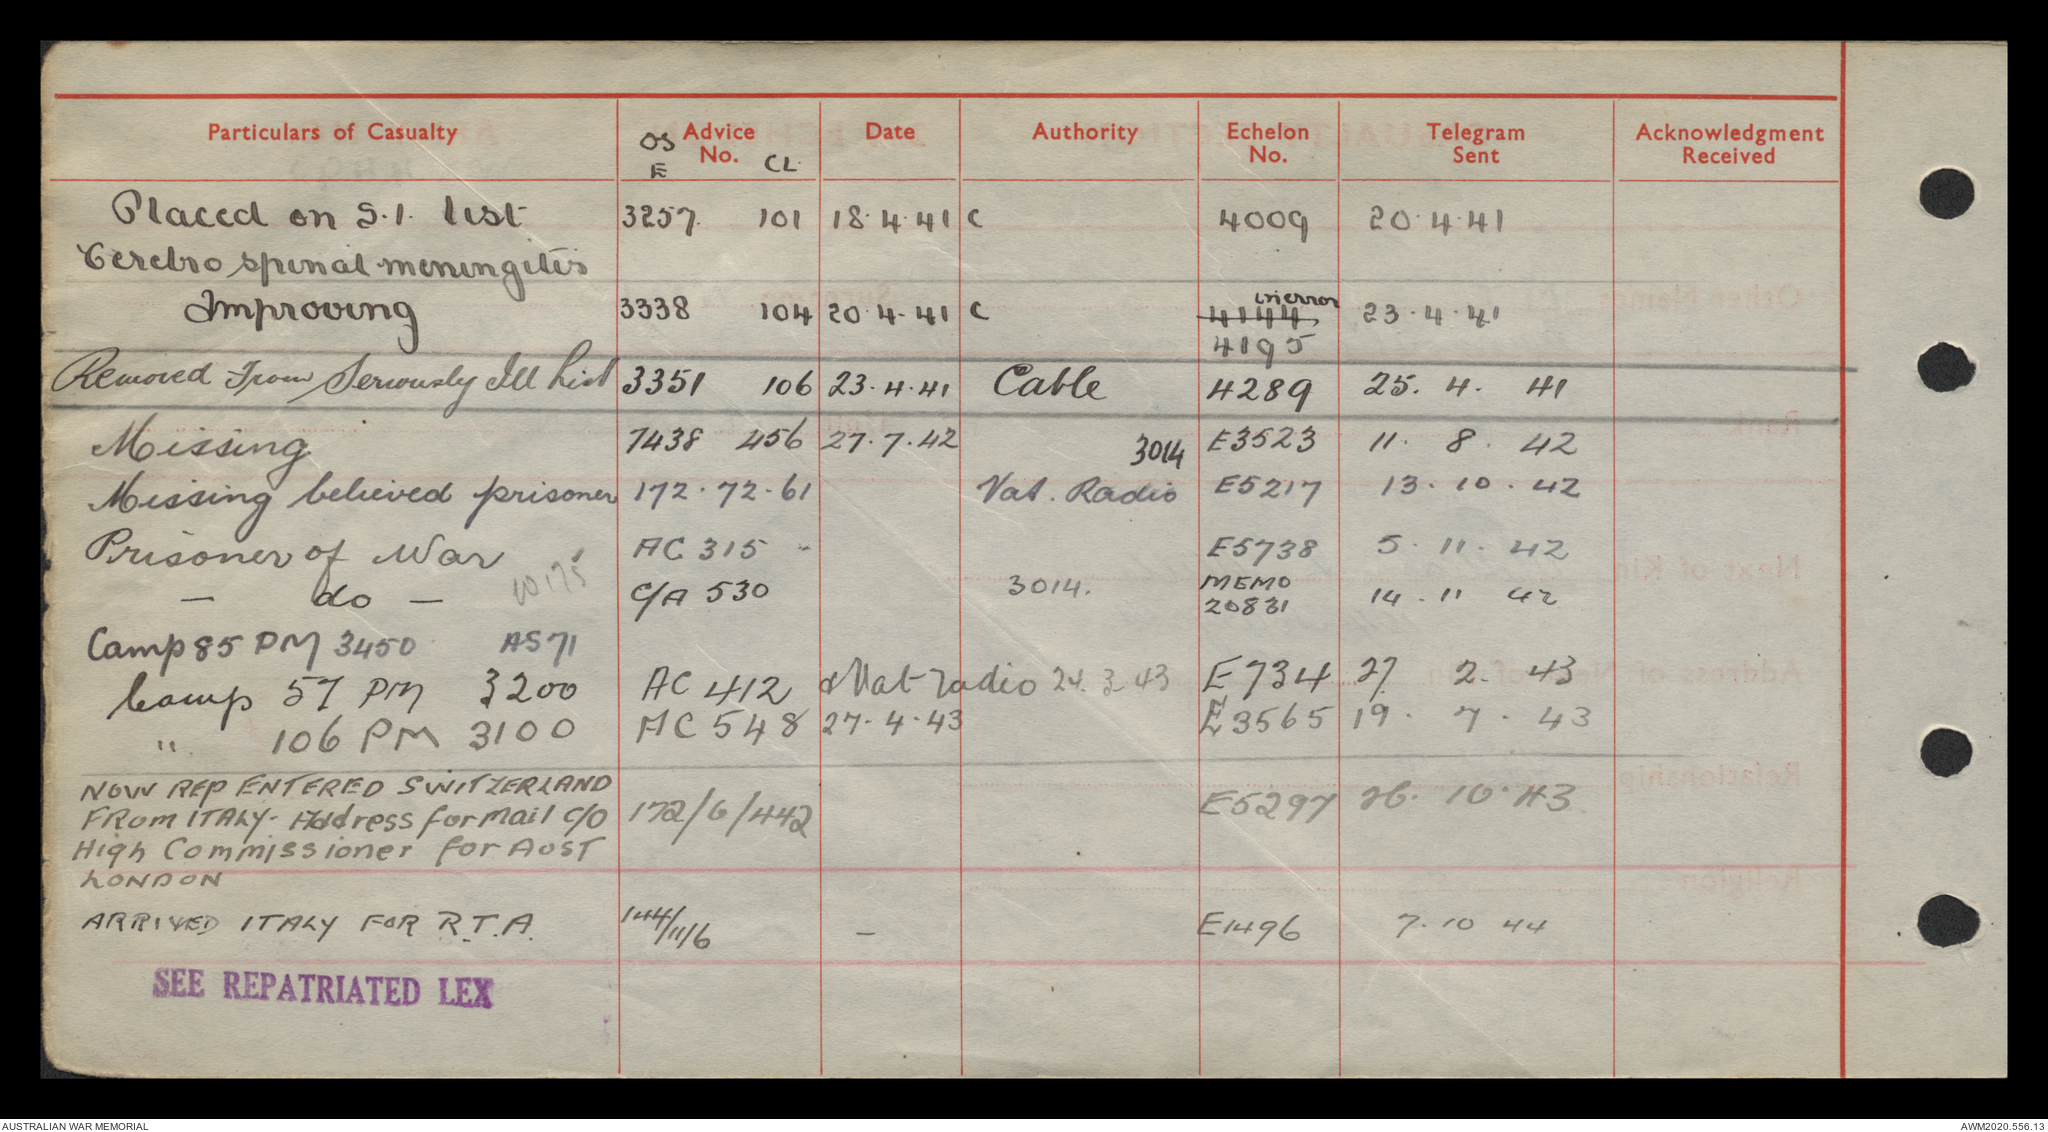 Particulars of Casualty OS E Advice No. CL Date Authority Echelon No. Telegram Sent Acknowledgment Received
Placed on S.I. list 3257. 101 18.4.41 C 4009 20.4.41
Cerebro spinal meningitis
Improving 3338 104 20.4.41 C 4144 in error 23.4.41
4195
Removed From Seriously Ill List 3351 106 23.4.41 Cable 4289 25. 4. 41
Missing 7438 456 27.7.42 3014 E3523 11. 8. 42
Missing believed prisoner 172.72.61 Vat. Radio E5217 13.10.42
Prisoner of War AC 315 - E5738 5.11.42
— do — 10175 C/A 530 3014. MEMO 20831 14.11 42
Camp 85 PM 3450 AS71
Camp 57 PM 3200 AC 412 & Vat radio 24.3.43 E734 27. 2. 43
" 106 PM 3100 AC 548 27.4.43 E3565 19. 7. 43
NOW REP ENTERED SWITZERLAND
FROM ITALY- Address for mail c/o 172/6/442 E5297 26.10.43
High Commissioner for AUST
LONDON
ARRIVED ITALY FOR R.T.A. 144/11/6 — E1496 7.10 44
SEE REPATRIATED LEX
AUSTRALIAN WAR MEMORIAL AWM2020.556.13